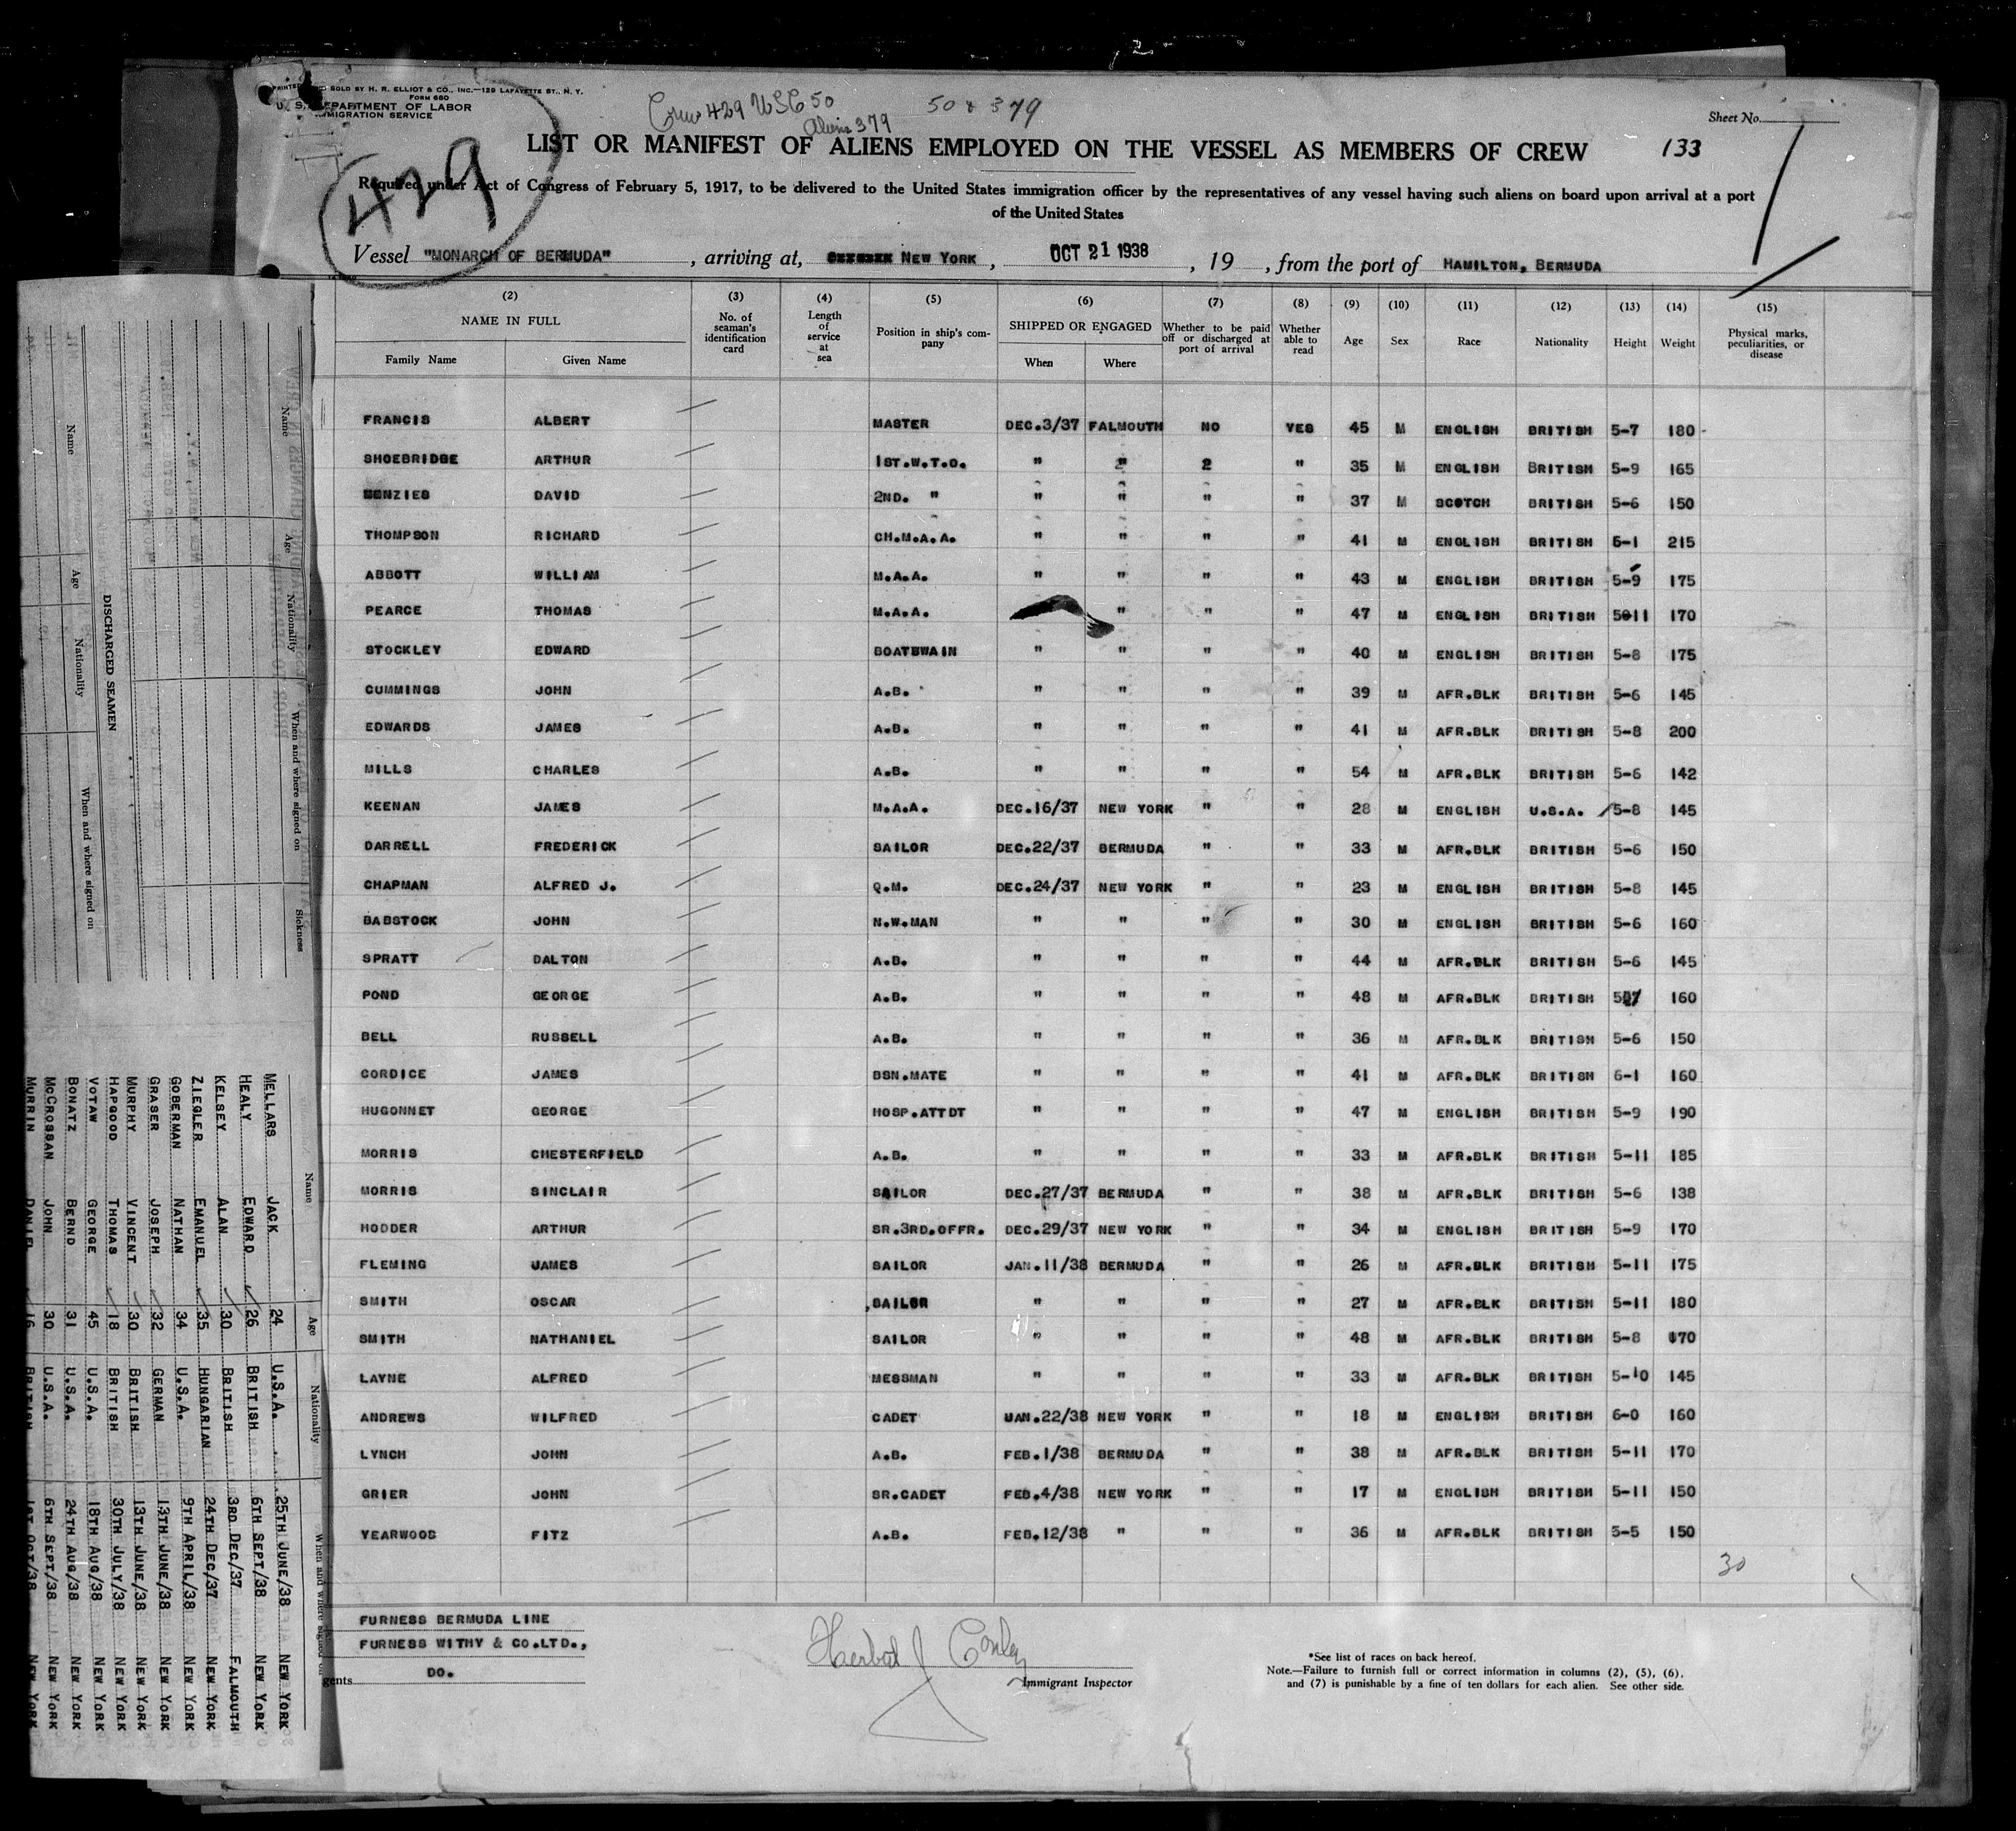 SOLD BY H. R. ELLIOT & CO., INC.—129 LAFAYETTE ST., N. Y.
FORM 680
U. S. DEPARTMENT OF LABOR
IMMIGRATION SERVICE
Crew 429 USC 50
Aliens 379
50 & 379
Sheet No.
429
LIST OR MANIFEST OF ALIENS EMPLOYED ON THE VESSEL AS MEMBERS OF CREW
133
Required under Act of Congress of February 5, 1917, to be delivered to the United States immigration officer by the representatives of any vessel having such aliens on board upon arrival at a port
of the United States
Vessel "MONARCH OF BERMUDA", arriving at, NEW YORK, OCT 21 1938, 19 , from the port of HAMILTON, BERMUDA
(2) (3) (4) (5) (6) (7) (8) (9) (10) (11) (12) (13) (14) (15)
NAME IN FULL No. of seaman's identification card Length of service at sea Position in ship's company SHIPPED OR ENGAGED Whether to be paid off or discharged at port of arrival Whether able to read Age Sex Race Nationality Height Weight Physical marks, peculiarities, or disease
Family Name Given Name When Where
FRANCIS ALBERT MASTER DEC.3/37 FALMOUTH NO YES 45 M ENGLISH BRITISH 5-7 180
SHOEBRIDGE ARTHUR 1ST.W.T.O. " " 2 " 35 M ENGLISH BRITISH 5-9 165
MENZIES DAVID 2ND. " " " " " 37 M SCOTCH BRITISH 5-6 150
THOMPSON RICHARD CH.M.A.A. " " " " 41 M ENGLISH BRITISH 6-1 215
ABBOTT WILLIAM M.A.A. " " " " 43 M ENGLISH BRITISH 5-9 175
PEARCE THOMAS M.A.A. " " " 47 M ENGLISH BRITISH 5-11 170
STOCKLEY EDWARD BOATSWAIN " " " " 40 M ENGLISH BRITISH 5-8 175
CUMMINGS JOHN A.B. " " " " 39 M AFR.BLK BRITISH 5-6 145
EDWARDS JAMES A.B. " " " " 41 M AFR.BLK BRITISH 5-8 200
MILLS CHARLES A.B. " " " " 54 M AFR.BLK BRITISH 5-6 142
KEENAN JAMES M.A.A. DEC.16/37 NEW YORK " " 28 M ENGLISH U.S.A. 5-8 145
DARRELL FREDERICK SAILOR DEC.22/37 BERMUDA " " 33 M AFR.BLK BRITISH 5-6 150
CHAPMAN ALFRED J. Q.M. DEC.24/37 NEW YORK " " 23 M ENGLISH BRITISH 5-8 145
BABSTOCK JOHN N.W.MAN " " " " 30 M ENGLISH BRITISH 5-6 160
SPRATT DALTON A.B. " " " " 44 M AFR.BLK BRITISH 5-6 145
POND GEORGE A.B. " " " " 48 M AFR.BLK BRITISH 5-7 160
BELL RUSSELL A.B. " " " " 36 M AFR.BLK BRITISH 5-6 150
CORDICE JAMES BSN.MATE " " " " 41 M AFR.BLK BRITISH 6-1 160
HUGONNET GEORGE HOSP.ATTDT " " " " 47 M ENGLISH BRITISH 5-9 190
MORRIS CHESTERFIELD A.B. " " " " 33 M AFR.BLK BRITISH 5-11 185
MORRIS SINCLAIR SAILOR DEC.27/37 BERMUDA " " 38 M AFR.BLK BRITISH 5-6 138
HODDER ARTHUR SR.3RD.OFFR. DEC.29/37 NEW YORK " " 34 M ENGLISH BRITISH 5-9 170
FLEMING JAMES SAILOR JAN.11/38 BERMUDA " " 26 M AFR.BLK BRITISH 5-11 175
SMITH OSCAR SAILOR " " " " 27 M AFR.BLK BRITISH 5-11 180
SMITH NATHANIEL SAILOR " " " " 48 M AFR.BLK BRITISH 5-8 170
LAYNE ALFRED MESSMAN " " " " 33 M AFR.BLK BRITISH 5-10 145
ANDREWS WILFRED CADET JAN.22/38 NEW YORK " " 18 M ENGLISH BRITISH 6-0 160
LYNCH JOHN A.B. FEB.1/38 BERMUDA " " 38 M AFR.BLK BRITISH 5-11 170
GRIER JOHN SR.CADET FEB.4/38 NEW YORK " " 17 M ENGLISH BRITISH 5-11 150
YEARWOOD FITZ A.B. FEB.12/38 " " " 36 M AFR.BLK BRITISH 5-5 150
30
FURNESS BERMUDA LINE
FURNESS WITHY & CO.LTD.,
gents DO.
Herbert J Conley
Immigrant Inspector
*See list of races on back hereof.
Note.—Failure to furnish full or correct information in columns (2), (5), (6).
and (7) is punishable by a fine of ten dollars for each alien. See other side.
DISCHARGED SEAMEN
Name Age Nationality When and where signed on Sickness
Name Age Nationality When and where signed on
Name Age Nationality When and where signed on
MELLARS JACK 24 U.S.A. 25TH JUNE/38 NEW YORK
HEALY EDWARD 26 BRITISH 6TH SEPT/38 NEW YORK
KELSEY ALAN 30 BRITISH 3RD DEC/37 FALMOUTH
ZIEGLER EMANUEL 35 HUNGARIAN 24TH DEC/37 NEW YORK
GOBERMAN NATHAN 34 U.S.A. 9TH APRIL/38 NEW YORK
GRASER JOSEPH 32 GERMAN 13TH JUNE/38 NEW YORK
MURPHY VINCENT 30 BRITISH 13TH JUNE/38 NEW YORK
HAPGOOD THOMAS 18 BRITISH 30TH JULY/38 NEW YORK
VOTAW GEORGE 45 U.S.A. 18TH AUG/38 NEW YORK
BONATZ BERND 31 U.S.A. 24TH AUG/38 NEW YORK
MCCROSSAN JOHN 30 U.S.A. 6TH SEPT/38 NEW YORK
MURRIN DANIEL 16 BRITISH 1ST OCT/38 NEW YORK